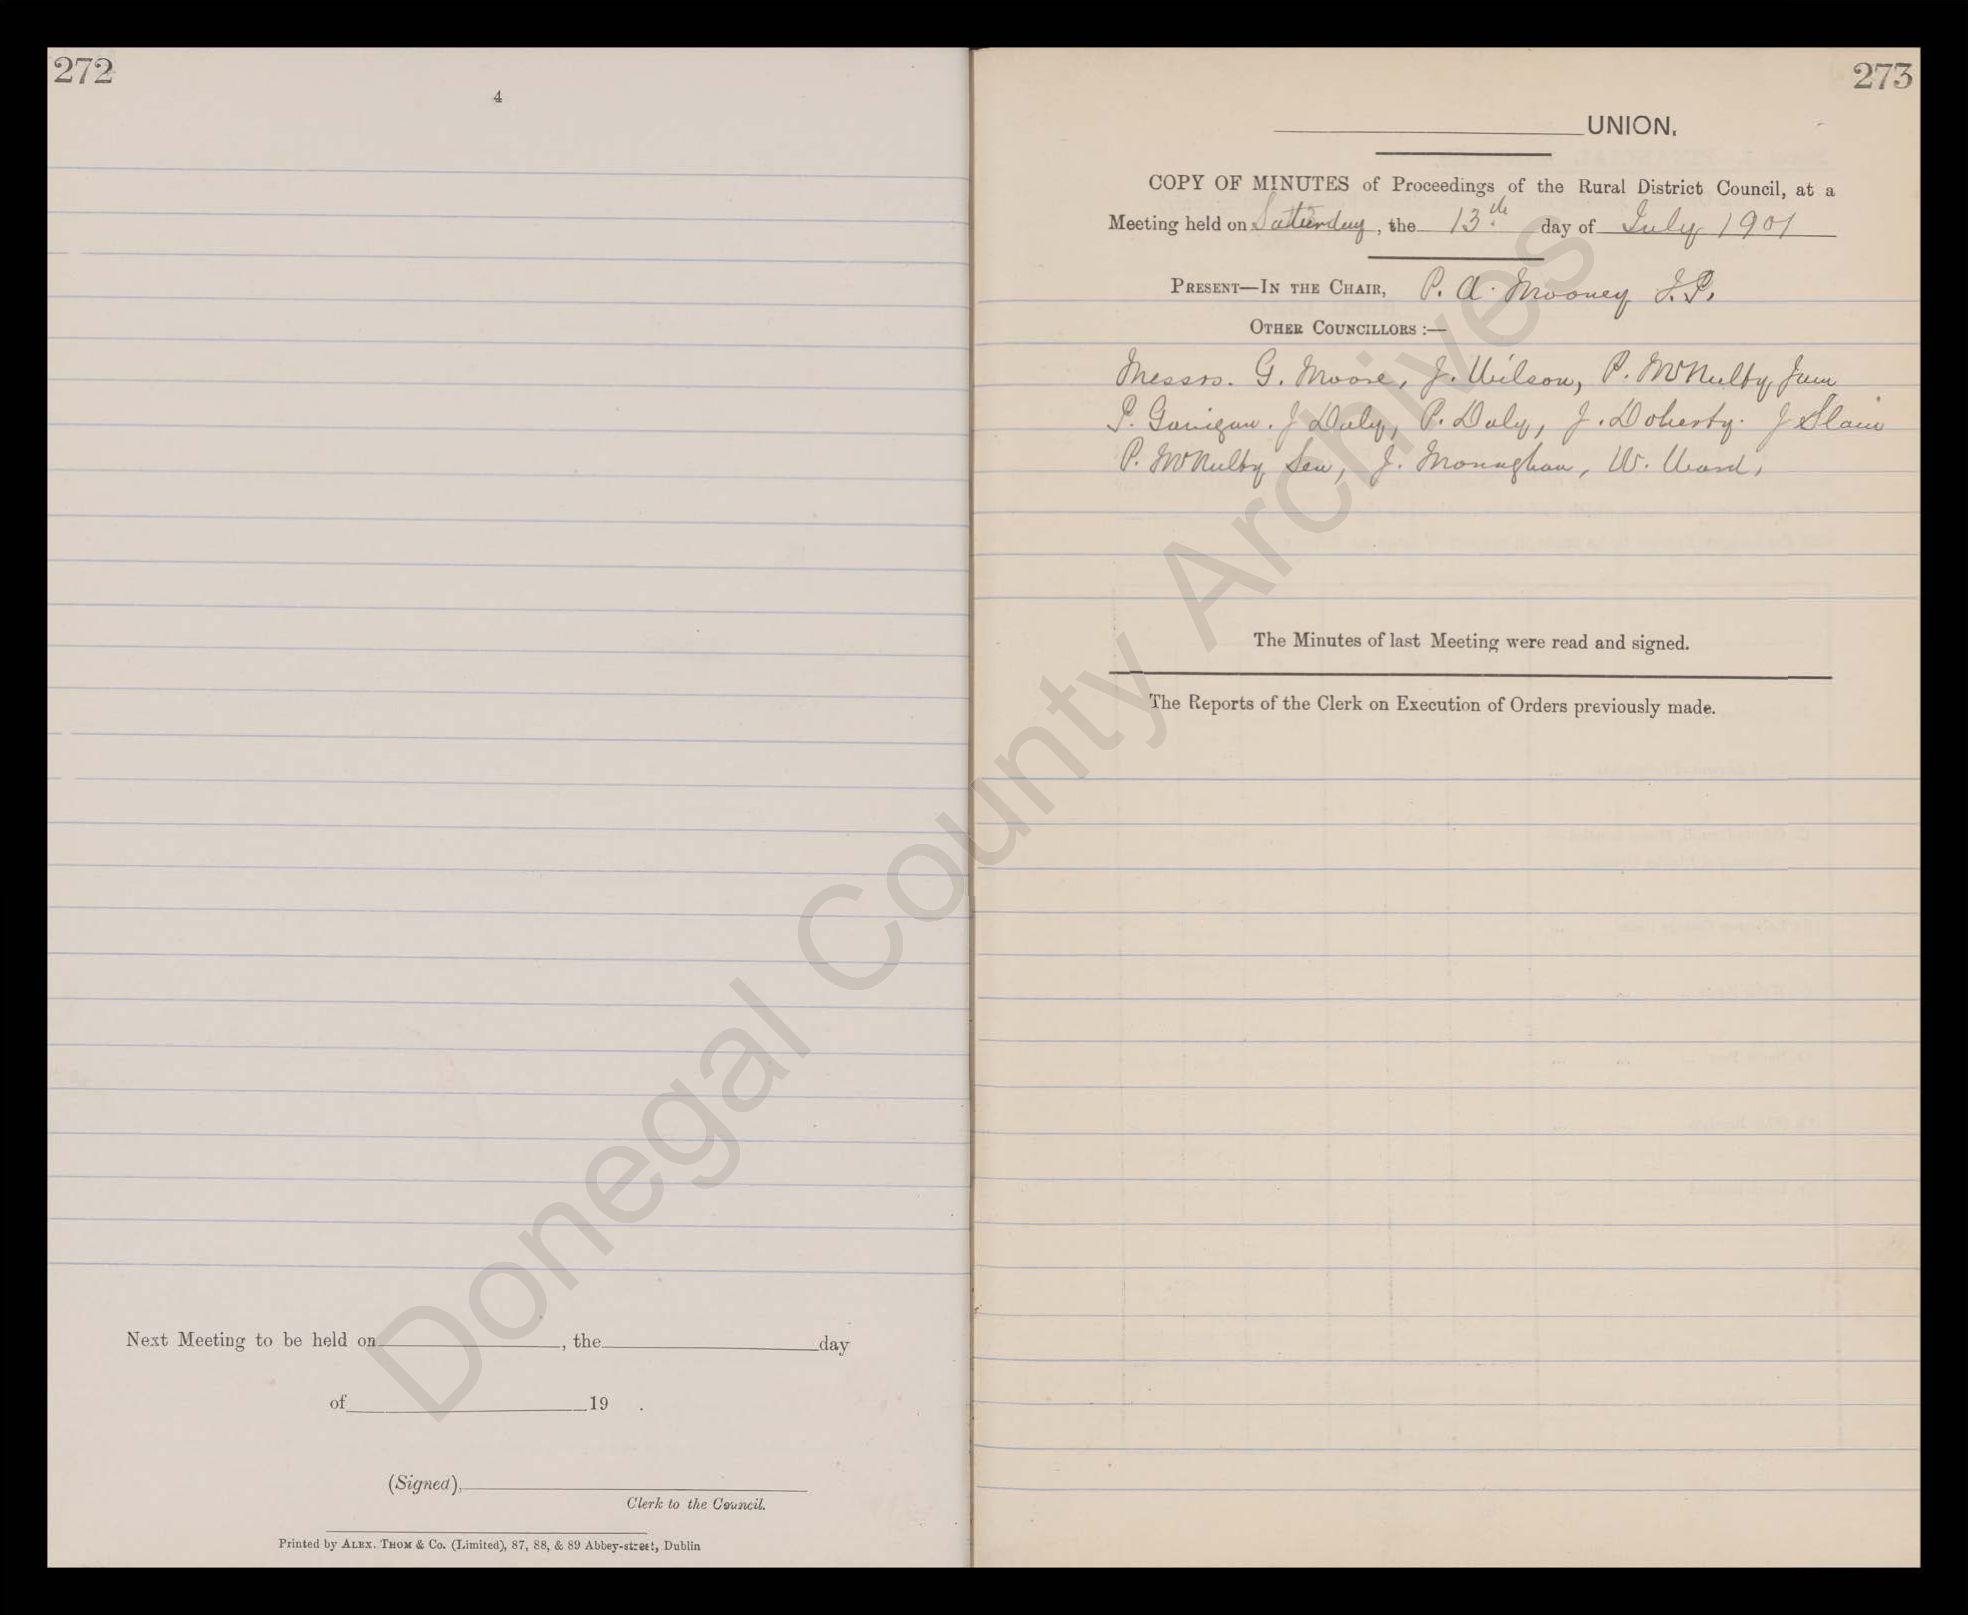 272
4
Next Meeting to be held on , the day
of 19 .
(Signed),
Clerk to the Council.
Printed by ALEX. THOM & Co. (Limited), 87, 88, & 89 Abbey-street, Dublin
273
UNION.
COPY OF MINUTES of Proceedings of the Rural District Council, at a
Meeting held on Saturday, the 13th day of July 1901
PRESENT—IN THE CHAIR, P. A. Mooney J.P.
OTHER COUNCILLORS :—
Messrs. G. Moore, J. Wilson, P. McNulty Jun
P. Garigan. J Daly, P. Daly, J. Doherty. J Slain
P. McNulty Sen, J. Monaghan, W. Ward,
The Minutes of last Meeting were read and signed.
The Reports of the Clerk on Execution of Orders previously made.
Donegal County Archives